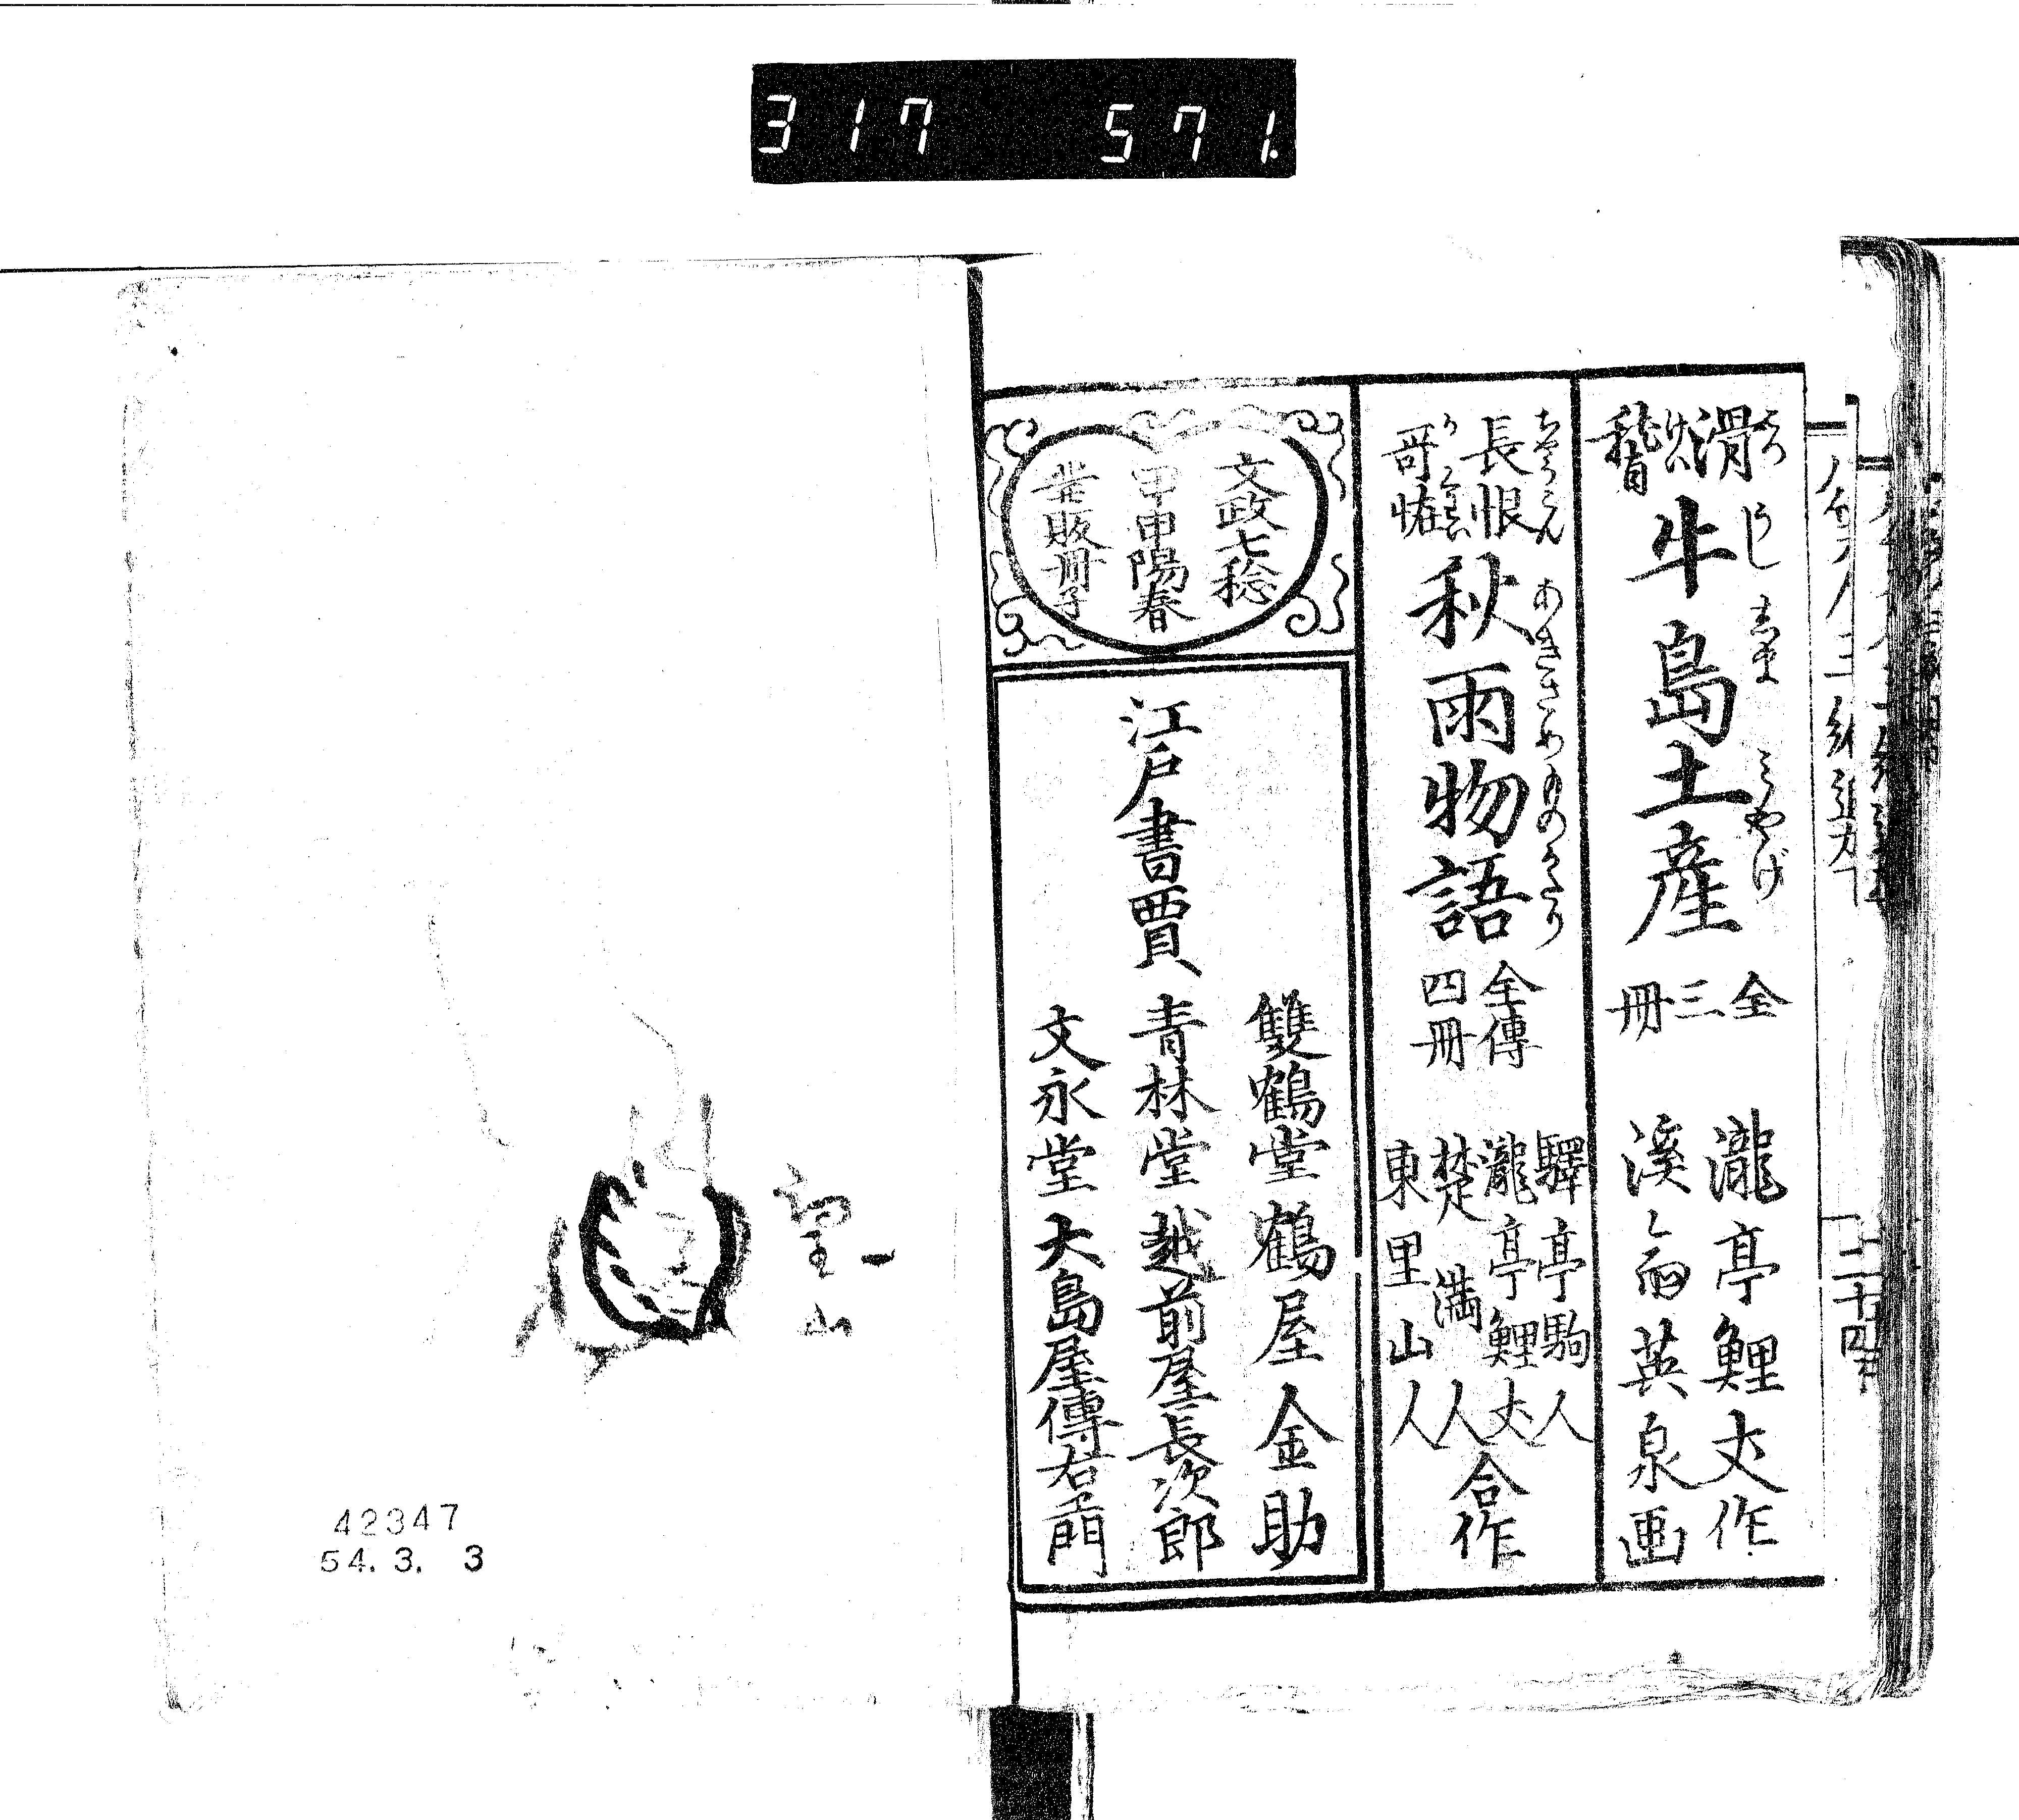 317 571.
滑稽 牛島土産 全三冊 瀧亭鯉丈作
溪斎英泉画
うし しま みやげ
長恨
哥
秋雨物語 全傳四冊
あきさめものがたり
驛亭駒人
瀧亭鯉丈
楚満人
東里山人
合作
文政七稔
甲申陽春
発販冊子
江戸書賈
雙鶴堂 鶴屋金助
青林堂 越前屋長次郎
文永堂 大島屋傳右衛門
二十四
山
42347
54. 3. 3